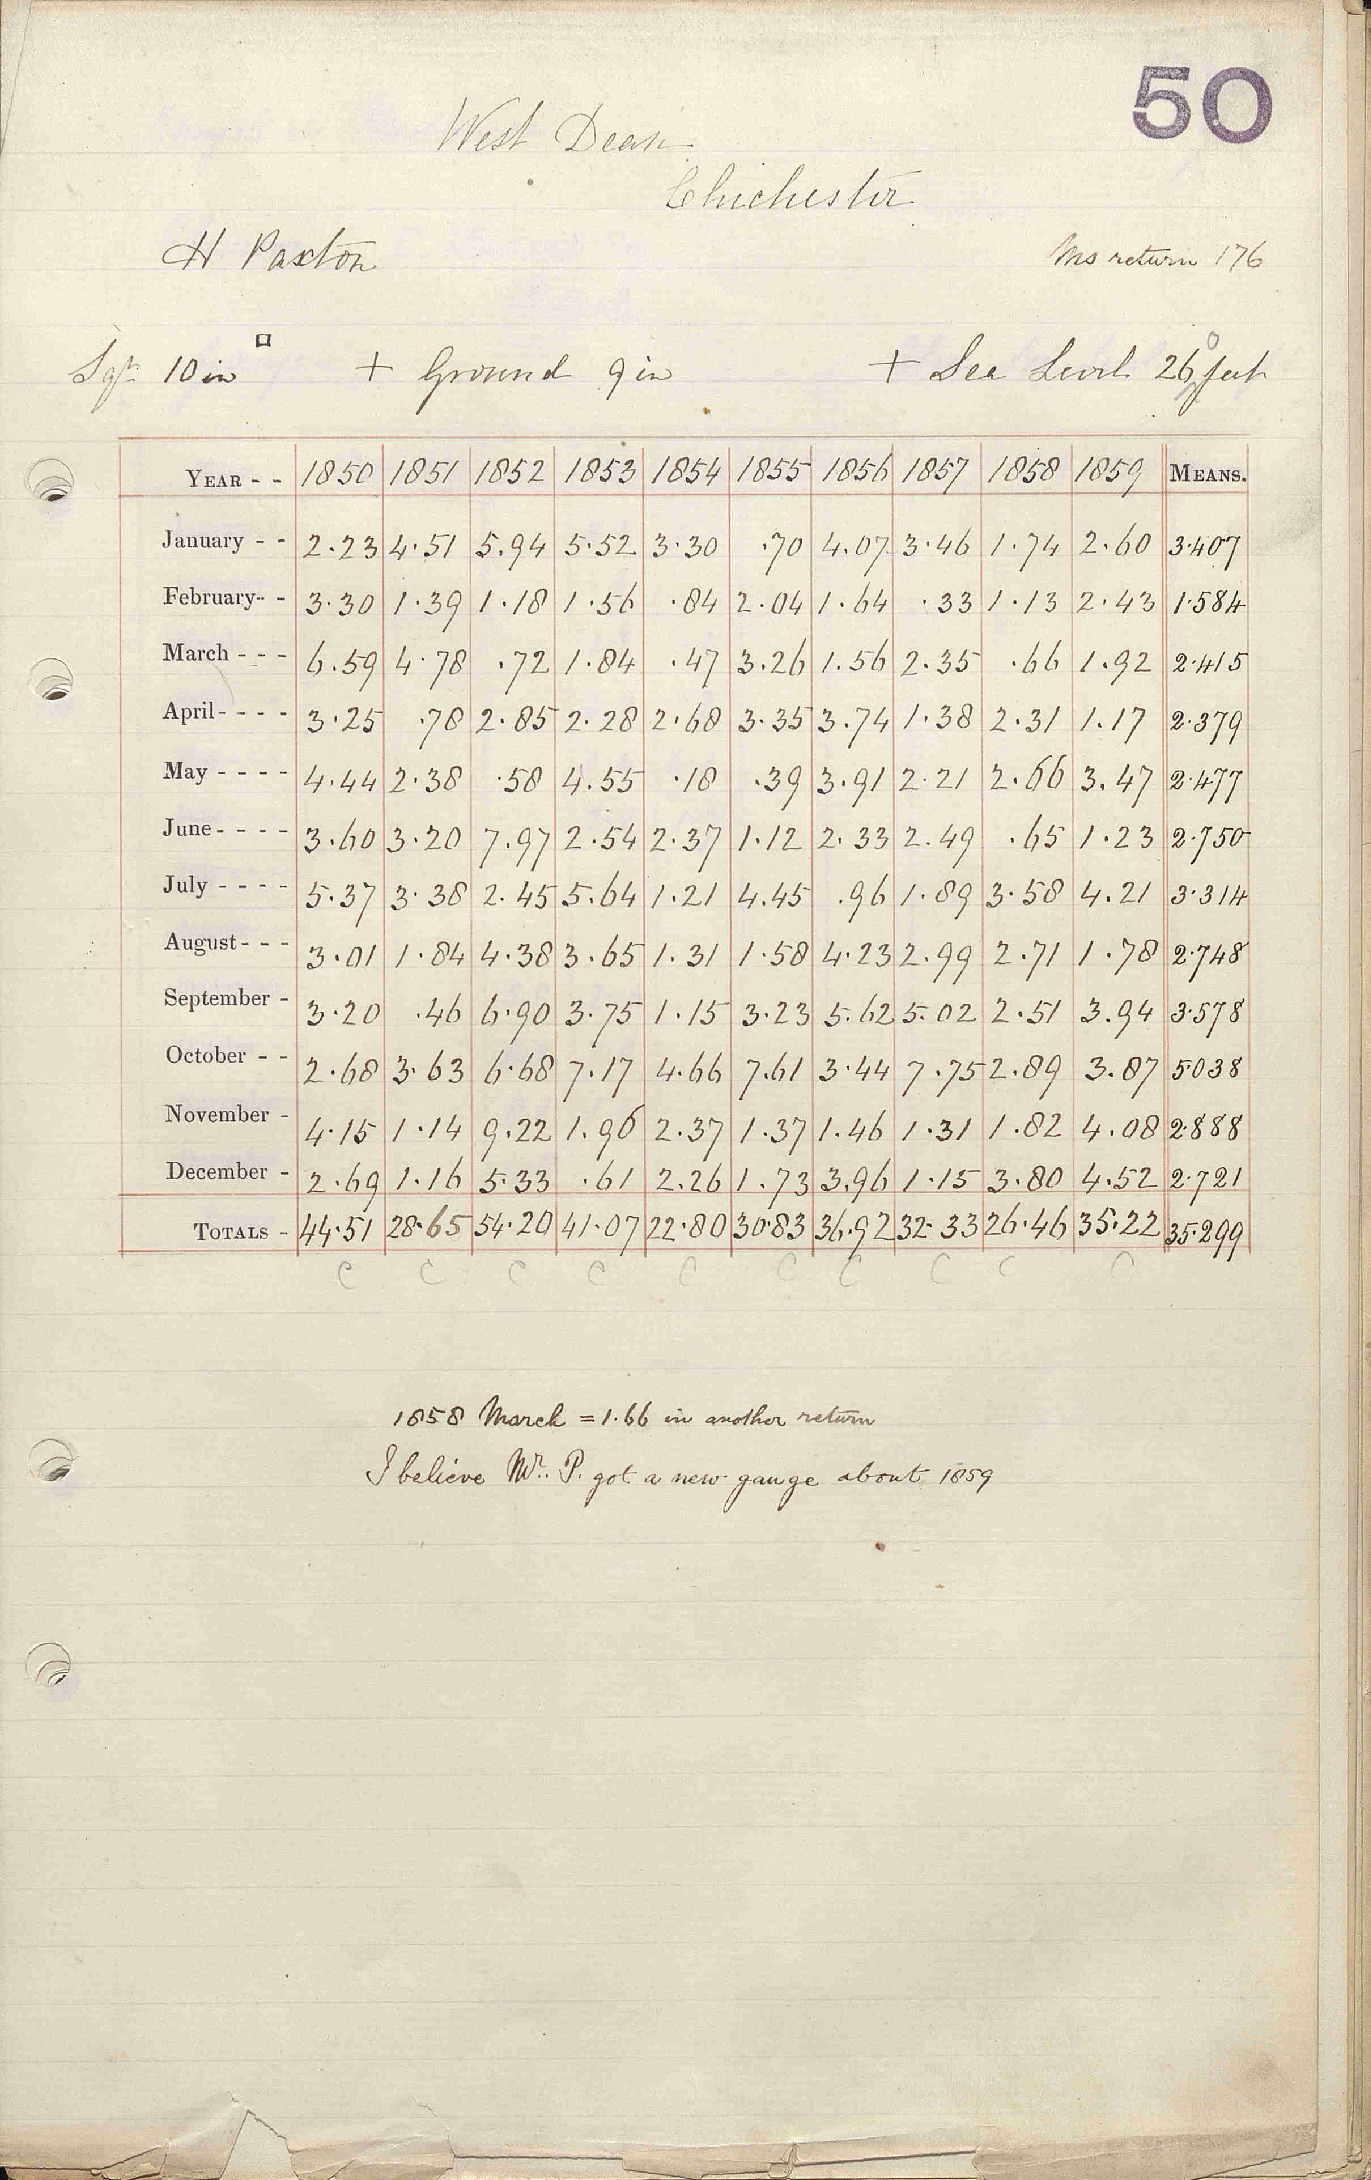 50
West Dean
Chichester
H Paxton
Ms return 176
10 in □ + Ground 9 in + Sea Level 260 feet
YEAR - - 1850 1851 1852 1853 1854 1855 1856 1857 1858 1859 MEANS.
January - - 2.23 4.51 5.94 5.52 3.30 .70 4.07 3.46 1.74 2.60 3.407
February - - 3.30 1.39 1.18 1.56 .84 2.04 1.64 .33 1.13 2.43 1.584
March - - - 6.59 4.78 .72 1.84 .47 3.26 1.56 2.35 .66 1.92 2.415
April - - - - 3.25 .78 2.85 2.28 2.68 3.35 3.74 1.38 2.31 1.17 2.379
May - - - - 4.44 2.38 .58 4.55 .18 .39 3.91 2.21 2.66 3.47 2.477
June - - - - 3.60 3.20 7.97 2.54 2.37 1.12 2.33 2.49 .65 1.23 2.750
July - - - - 5.37 3.38 2.45 5.64 1.21 4.45 .96 1.89 3.58 4.21 3.314
August - - - 3.01 1.84 4.38 3.65 1.31 1.58 4.23 2.99 2.71 1.78 2.748
September - 3.20 .46 6.90 3.75 1.15 3.23 5.62 5.02 2.51 3.94 3.578
October - - 2.68 3.63 6.68 7.17 4.66 7.61 3.44 7.75 2.89 3.87 5.038
November - 4.15 1.14 9.22 1.96 2.37 1.37 1.46 1.31 1.82 4.08 2.888
December - 2.69 1.16 5.33 .61 2.26 1.73 3.96 1.15 3.80 4.52 2.721
TOTALS - 44.51 28.65 54.20 41.07 22.80 30.83 36.92 32.33 26.46 35.22 35.299
C C C C C C C C C C
1858 March = 1.66 in another return
I believe Mr. P. got a new gauge about 1859